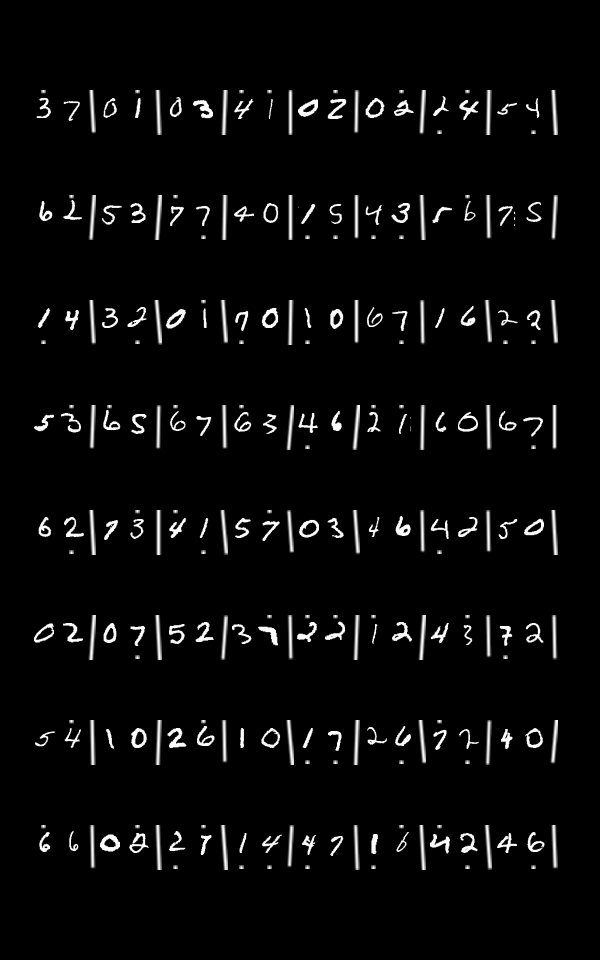 3̇ 7 | 0 1̇ | 0 3̇ | 4̇ 1̇ | 0 2̇ | 0 2̇ | 2̣ 4̇ | 5 4̣ |
6 2̇ | 5 3 | 7̇ 7̣ | 4 0 | 1̣ 5̣ | 4̣ 3̣ | 5 6̇ | 7 5 |
1̣ 4 | 3 2̣ | 0 1̇ | 7̣ 0 | 1̣ 0 | 6 7̣ | 1 6 | 2̣ 2̣ |
5 3̇ | 6̇ 5 | 6̇ 7 | 6̇ 3 | 4̣ 6 | 2̇ 1̇ | 6 0 | 6 7̣ |
6 2̣ | 7 3̇ | 4̇ 1̣ | 5 7̇ | 0 3 | 4 6 | 4̣ 2 | 5 0 |
0 2 | 0 7̣ | 5 2 | 3 7̇ | 2̇ 2̇ | 1̇ 2 | 4 3̇ | 7̣ 2 |
5 4̇ | 1 0 | 2 6̇ | 1 0 | 1̣ 7̣ | 2 6̣ | 7̇ 2̣ | 4 0 |
6̇ 6 | 0 2̇ | 2̣ 7̇ | 1̣ 4̣ | 4̣ 7 | 1̣ 6̇ | 4̇ 2̣ | 4 6̣ |